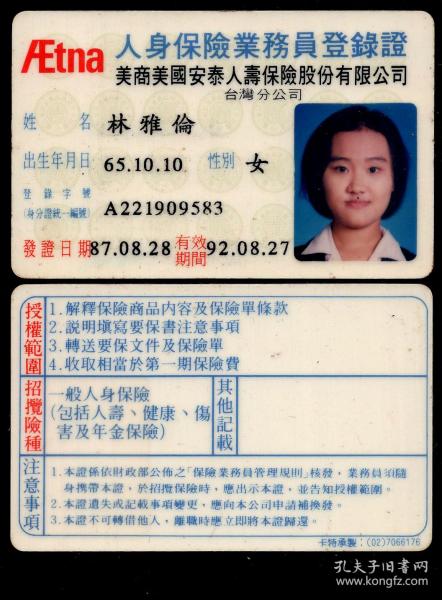 AEtna 人身保險業務員登錄證
美商美國安泰人壽保險股份有限公司
台灣分公司
姓名 林雅倫
出生年月日 65.10.10 性別 女
登錄字號
(身分證統一編號) A221909583
發證日期 87.08.28 有效期間 92.08.27
授權範圍
1.解釋保險商品內容及保險單條款
2.說明填寫要保書注意事項
3.轉送要保文件及保險單
4.收取相當於第一期保險費
招攬險種
一般人身保險
(包括人壽、健康、傷
害及年金保險)
其他記載
注意事項
1.本證係依財政部公佈之「保險業務員管理規則」核發，業務員須隨
身攜帶本證，於招攬保險時，應出示本證，並告知授權範圍。
2.本證遺失或記載事項變更，應向本公司申請補換發。
3.本證不可轉借他人，離職時應立即將本證歸還。
卡特承製：(02)7066176
孔夫子旧书网
www.kongfz.com